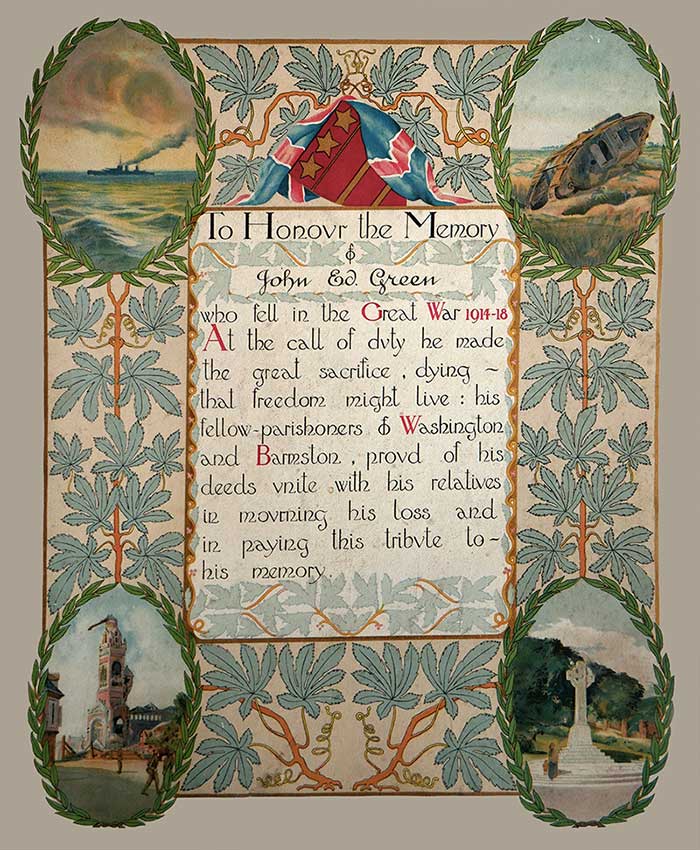 To Honovr the Memory
of
John Ed. Green
who fell in the Great War 1914-18
At the call of dvty he made
the great sacrifice, dying ~
that freedom might live: his
fellow-parishoners of Washington
and Barmston, provd of his
deeds vnite with his relatives
in movrning his loss and
in paying this tribvte to-
his memory.